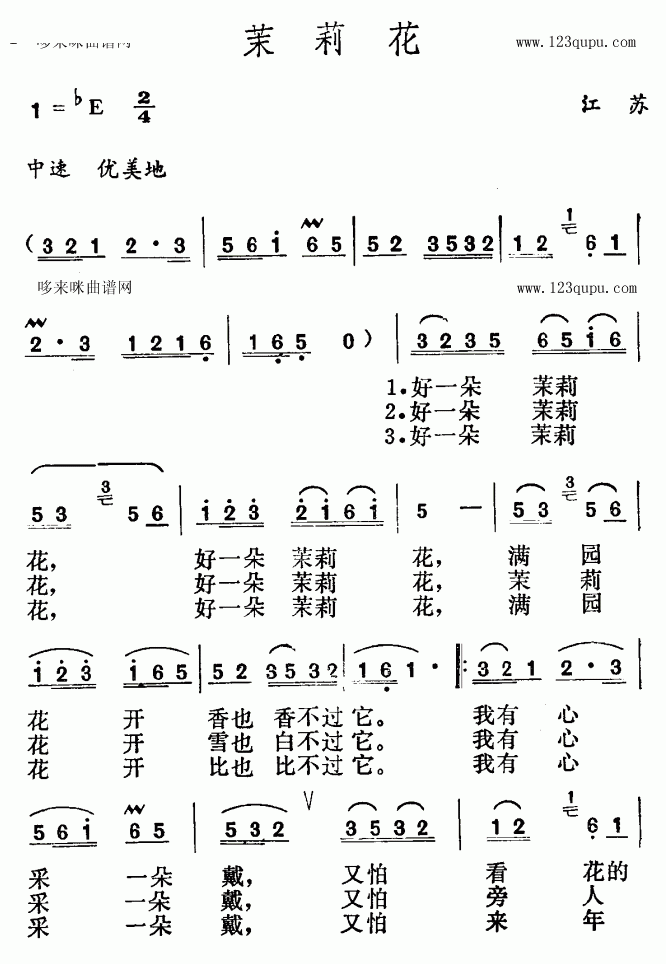 哆来咪曲谱网 茉莉花 www.123qupu.com
1=♭E 2/4 江苏
中速 优美地
(3 2 1 2·3 | 5 6 i 6 5 | 5 2 3 5 3 2 | 1 2 1 6 1 |
哆来咪曲谱网 www.123qupu.com
2·3 1 2 1 6 | 1 6 5 0) | 3 2 3 5 6 5 i 6 |
1.好一朵 茉莉
2.好一朵 茉莉
3.好一朵 茉莉
5 3 3 5 6 | i 2 3 2 i 6 i | 5 — | 5 3 3 5 6 |
花, 好一朵 茉莉 花, 满 园
花, 好一朵 茉莉 花, 茉 莉
花, 好一朵 茉莉 花, 满 园
i 2 3 i 6 5 | 5 2 3 5 3 2 | 1 6 1· |: 3 2 1 2·3 |
花 开 香也 香不过它。 我有 心
花 开 雪也 白不过它。 我有 心
花 开 比也 比不过它。 我有 心
5 6 i 6 5 | 5 3 2 V 3 5 3 2 | 1 2 1 6 1 |
采 一朵 戴, 又怕 看 花的
采 一朵 戴, 又怕 旁 人
采 一朵 戴, 又怕 来 年